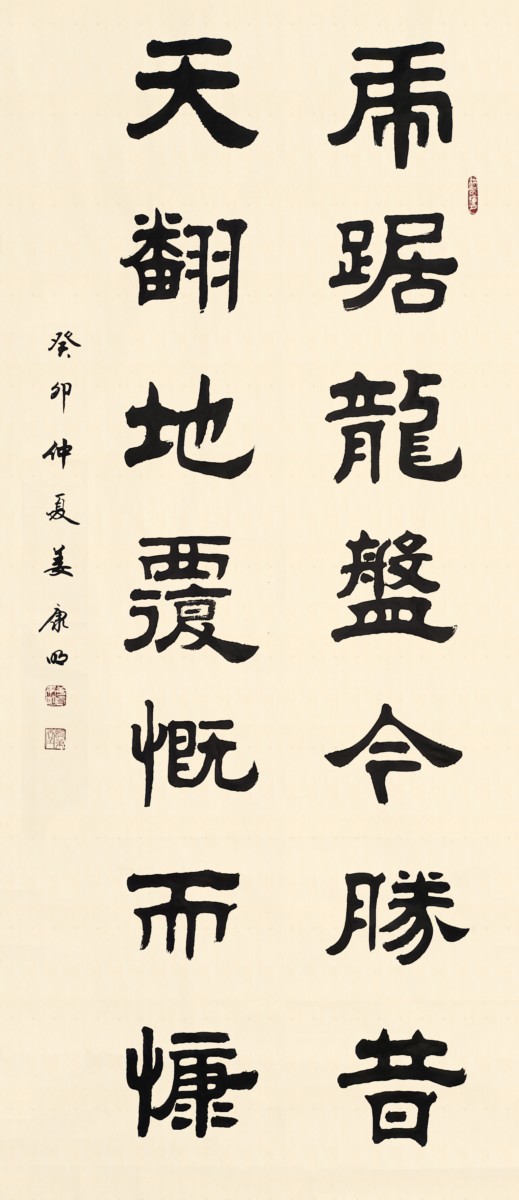 虎踞龍盤今勝昔
天翻地覆慨而慷
癸卯仲夏姜康明